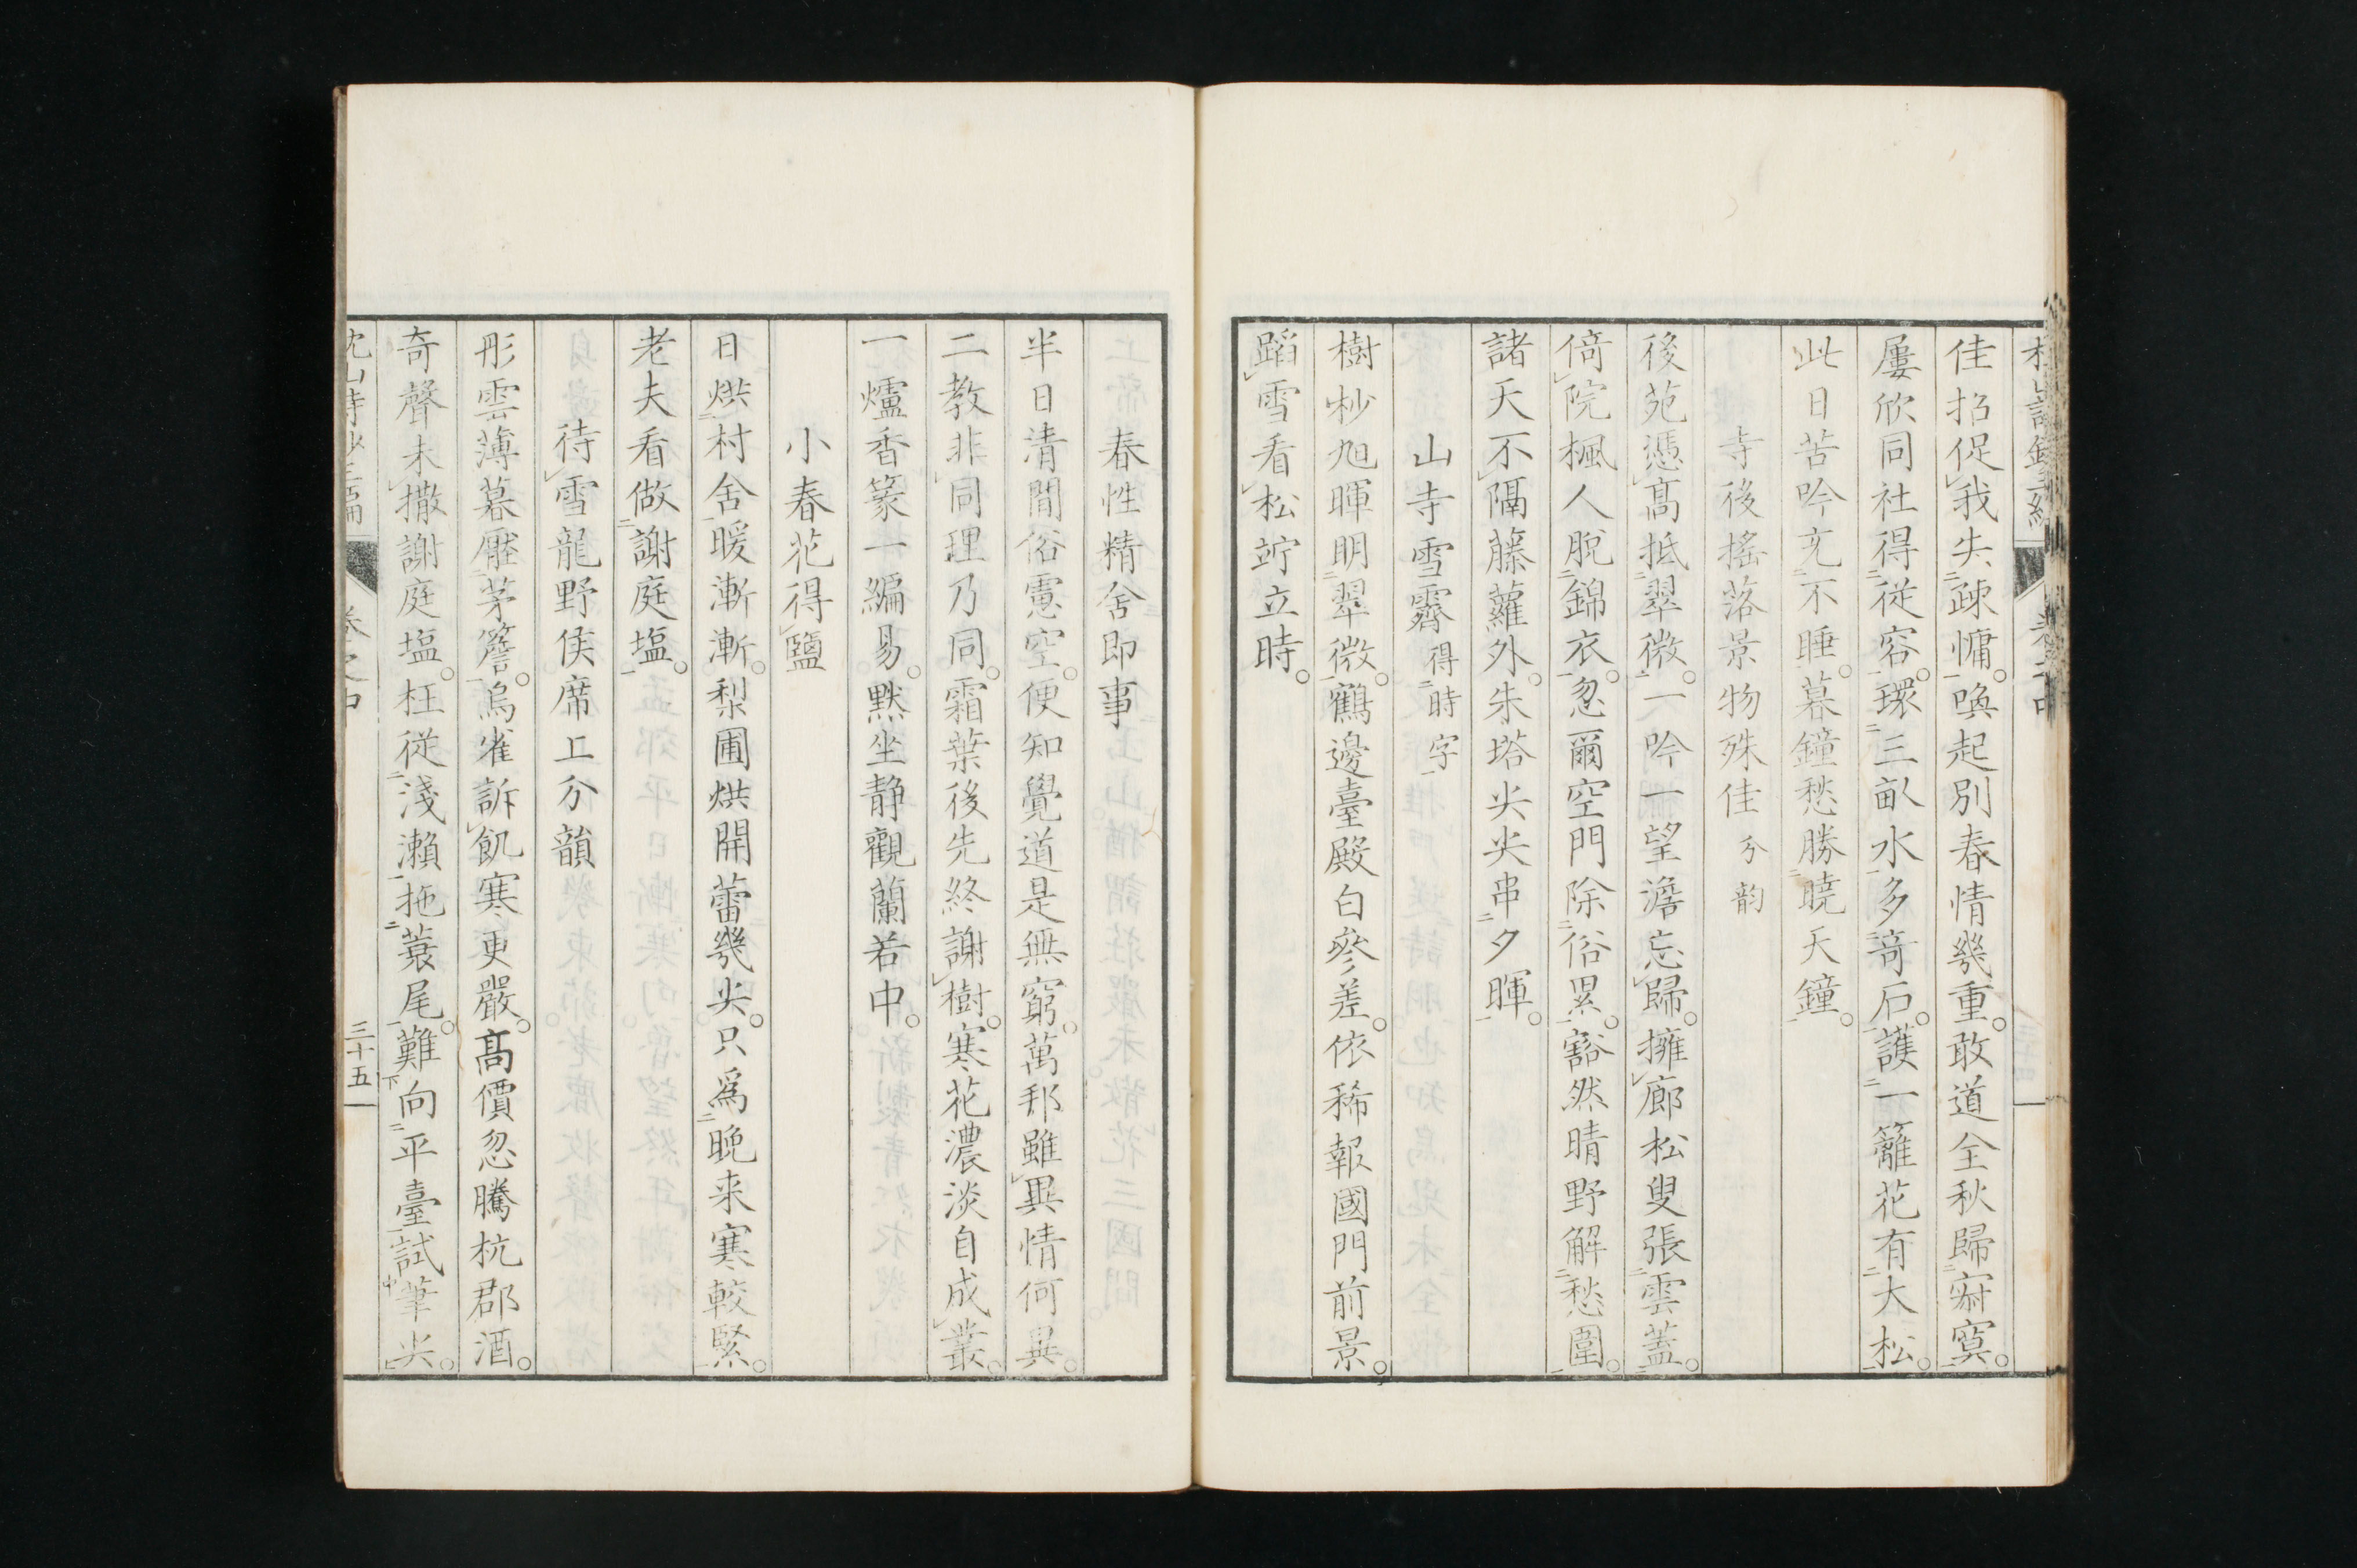 佳招促我失疎慵喚起別春情幾重敢道全秋歸寂寞
屢欣同社得從容環三畝水多奇石護一籬花有大松
此日苦吟允不睡暮鐘愁勝曉天鐘
寺後搖落景物殊佳分韵
後苑憑高抵翠微一吟一望澹忘歸擁廊松叟張雲蓋
倚院楓人脫錦衣忽爾空門除俗累豁然晴野解愁圍
諸天不隔藤蘿外朱塔尖尖串夕暉
山寺雪霽得時字
樹杪旭暉明翠微鶴邊臺殿白參差依稀報國門前景
蹈雪看松竚立時
春性精舍即事
半日清間俗慮空便知覺道是無窮萬邦雖異情何異
二教非同理乃同霜葉後先終謝樹寒花濃淡自成叢
一爐香篆一編易默坐静觀蘭若中
小春花得鹽
日烘村舍暖漸漸梨圃烘開蕾幾尖只爲晚来寒較緊
老夫看做謝庭塩
待雪龍野侯席上分韻
彤雲薄暮壓茅簷烏雀訴飢寒更嚴高價忽騰杭郡酒
奇聲未撒謝庭塩枉從淺瀨拖蓑尾難向平臺試筆尖
卷之中
三十五